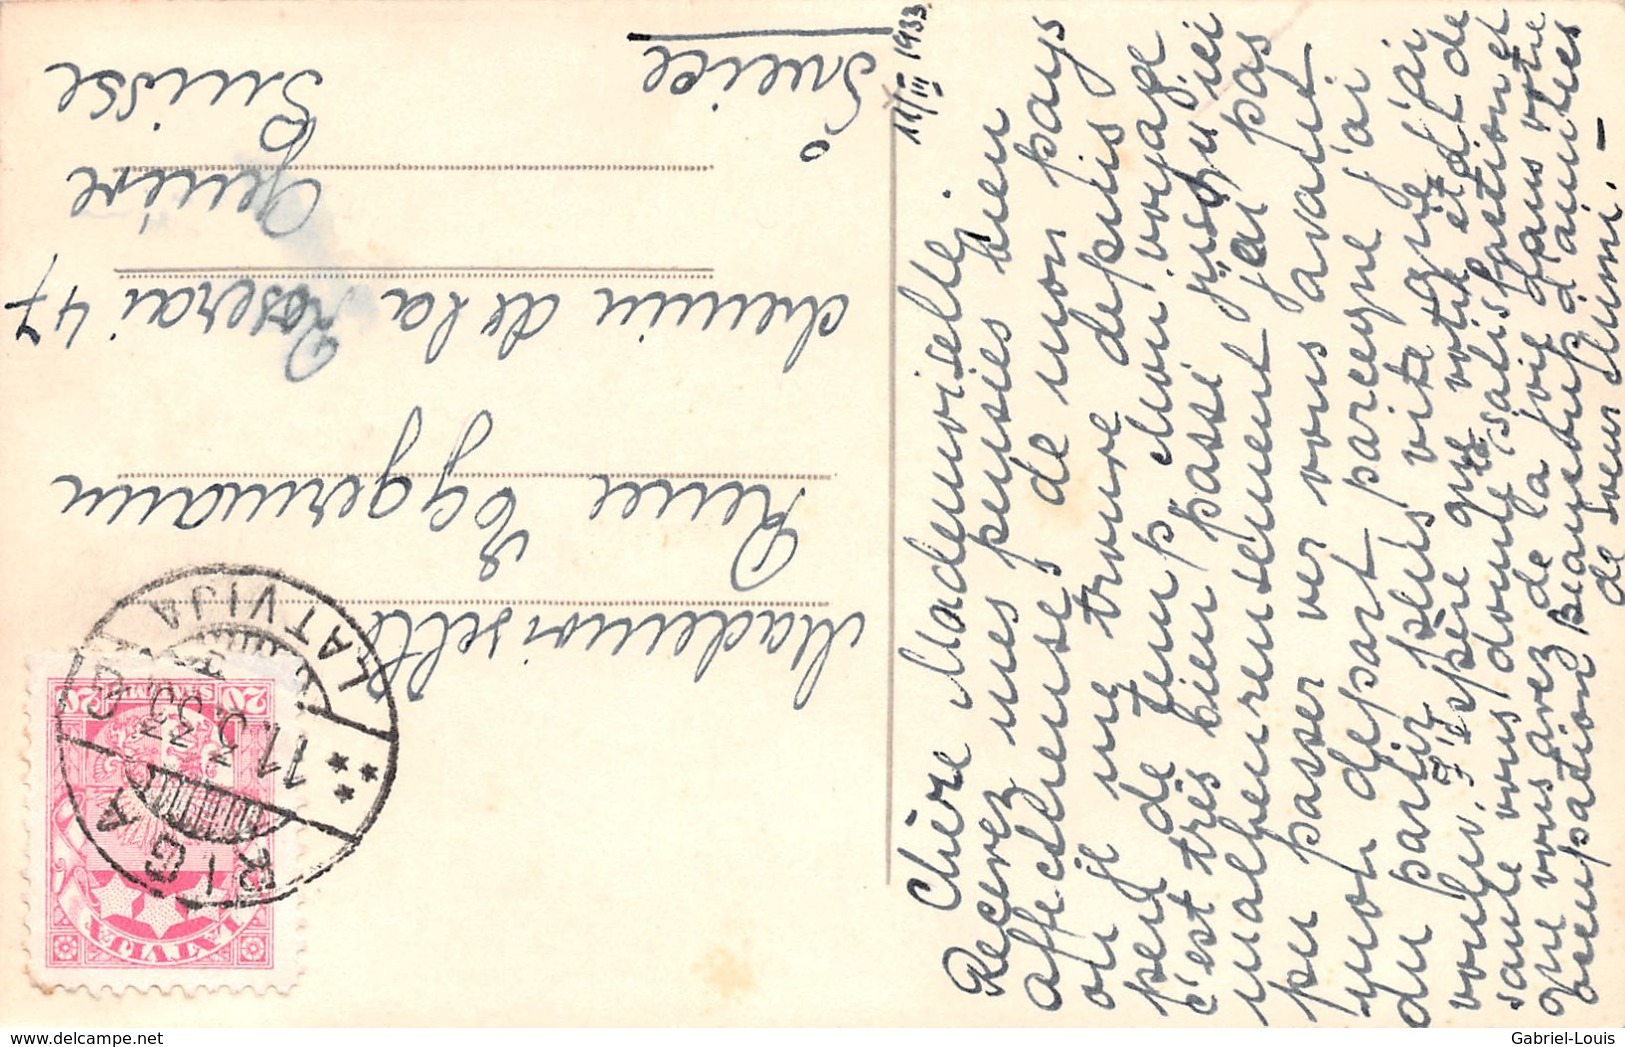 11/III 1933.
Chère Mademoiselle,
Recevez mes pensées bien
affectueuse de mon pays
ou il me trouve depuis
peu de temp. Mon voyage
c'est très bien passé jusqu'ici
malheureusement j'ai pas
pu passer ver vous avant
mon depart parceque j'ai
du partir plus vite que j'ai
voulu. J'éspère que votre état de
sante vous donne la satisfaction et
que vous avez de la joie dans votre
occupation Beaucoup d'amitiés
de Soeur Mimi. –
Mademoiselle
Renee Eggermann
chemin de la Roserai 47
Ó Genève
Sveice Suisse
LATVIJA
RIGA
11.3.33
20 SANTIMU 20
LATVIJA
delcampe.net
Gabriel-Louis